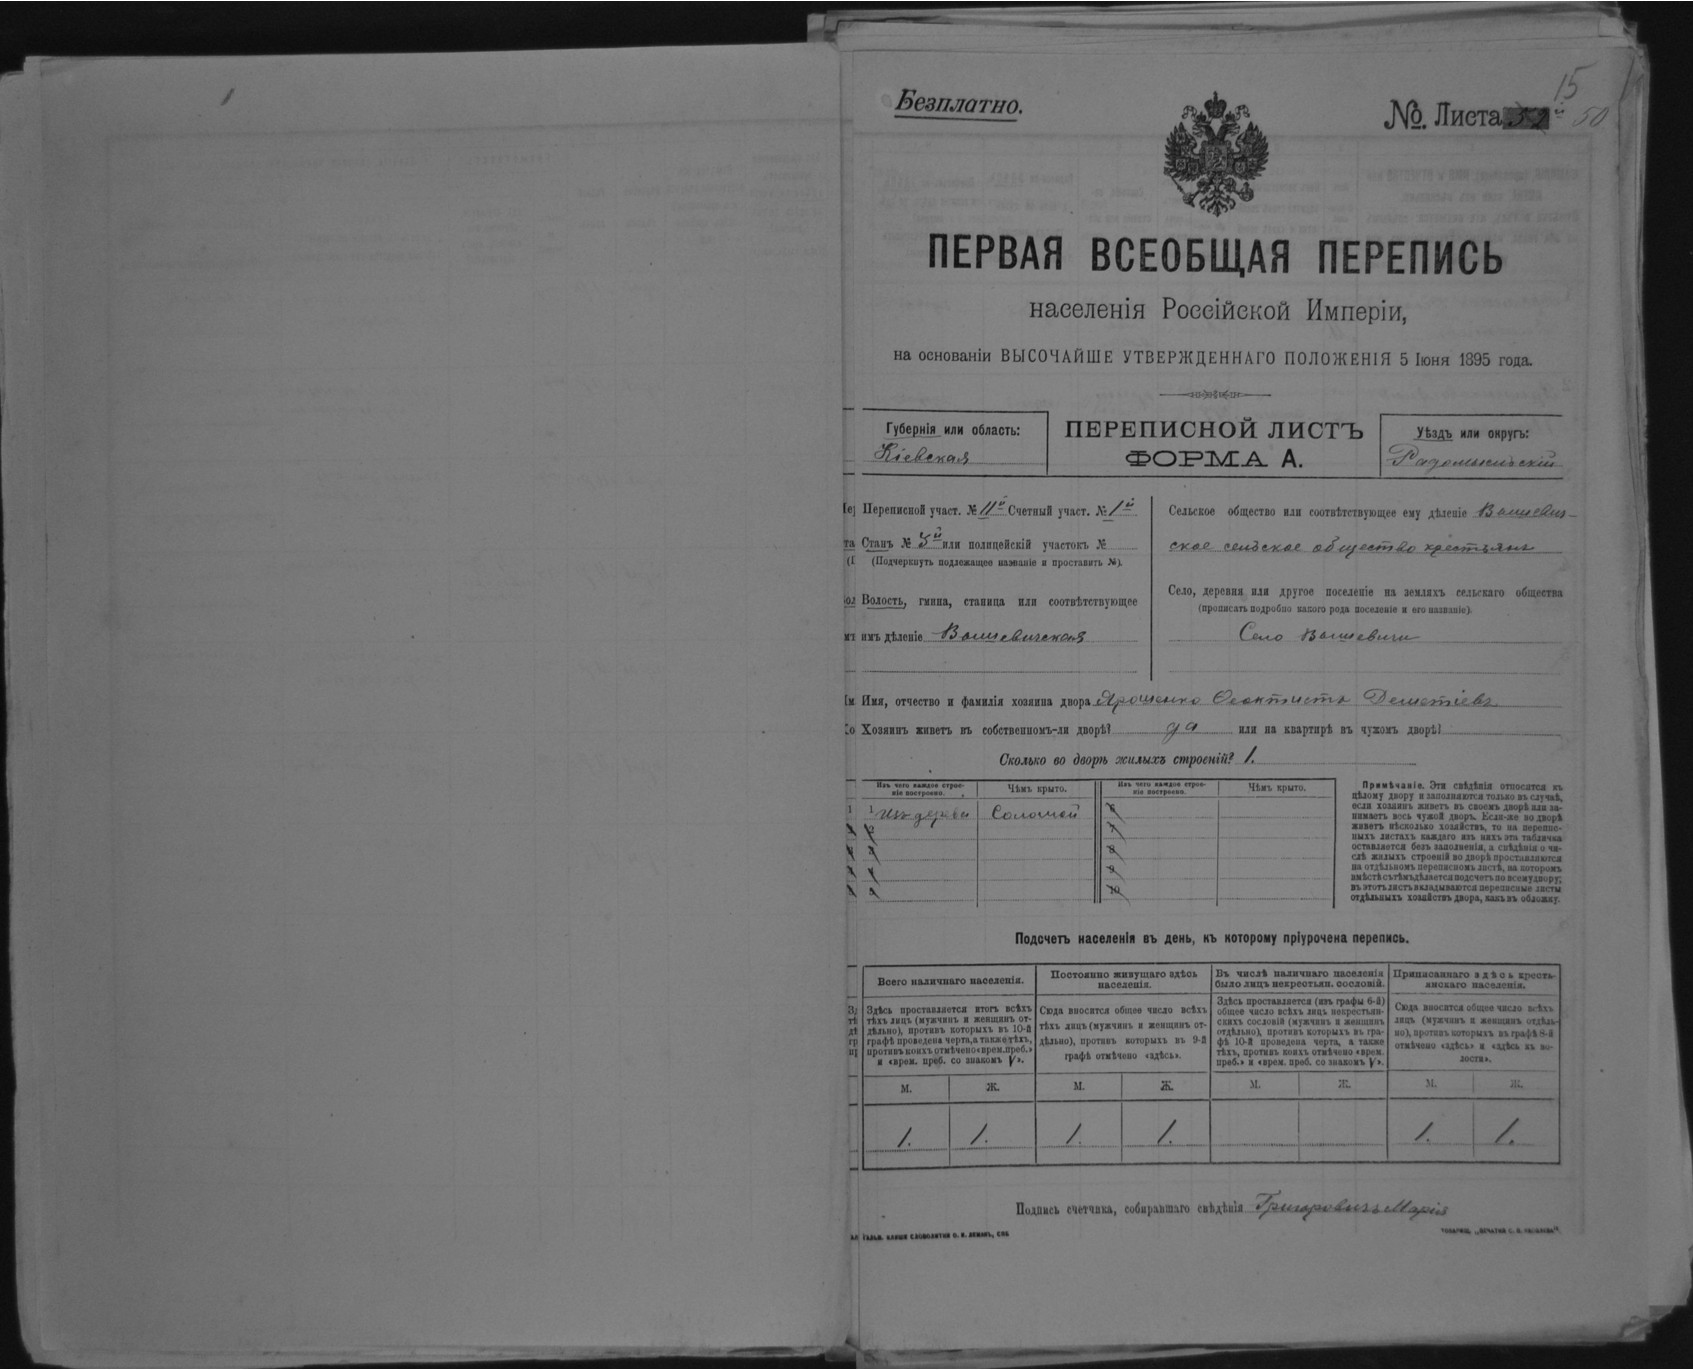 Безплатно.
№. Листа
15
50
ПЕРВАЯ ВСЕОБЩАЯ ПЕРЕПИСЬ
населенія Россійской Имперіи,
на основаніи ВЫСОЧАЙШЕ УТВЕРЖДЕННАГО ПОЛОЖЕНІЯ 5 Іюня 1895 года.
Губернія или область:
Кіевская
ПЕРЕПИСНОЙ ЛИСТЪ
ФОРМА А.
Уѣздъ или округъ:
Радомысльскій
Переписной участ. № 11й Счетный участ. № 1й
Станъ № 5й или полицейскій участокъ №
(Подчеркнуть подлежащее названіе и проставить №).
Волость, гмина, станица или соотвѣтствующее
имъ дѣленіе Вышевичская
Сельское общество или соотвѣтствующее ему дѣленіе Вышевич-
ское сельское общество крестьянъ
Село, деревня или другое поселеніе на земляхъ сельскаго общества
(прописать подробно какого рода поселеніе и его названіе).
Село Вышевичи
Имя, отчество и фамилія хозяина двора Ярошенко Феоктистъ
Хозяинъ живетъ въ собственномъ-ли дворѣ? да или на квартирѣ въ чужомъ дворѣ?
Сколько во дворѣ жилыхъ строеній? 1.
Изъ чего каждое строе-
ніе построено.
Чѣмъ крыто.
Изъ чего каждое строе-
ніе построено.
Чѣмъ крыто.
1 изъ дерева Соломой
2
3
4
5
6
7
8
9
10
Примѣчаніе. Эти свѣдѣнія относятся къ
цѣлому двору и заполняются только въ случаѣ,
если хозяинъ живетъ въ своемъ дворѣ или за-
нимаетъ весь чужой дворъ. Если-же во дворѣ
живетъ нѣсколько хозяйствъ, то на перепис-
ныхъ листахъ каждаго изъ нихъ эта табличка
оставляется безъ заполненія, а свѣдѣнія о чи-
слѣ жилыхъ строеній во дворѣ проставляются
на отдѣльномъ переписномъ листѣ, на которомъ
вмѣстѣ съ тѣмъ дѣлается подсчетъ по всему двору;
въ этотъ листъ вкладываются переписные листы
отдѣльныхъ хозяйствъ двора, какъ въ обложку.
Подсчетъ населенія въ день, къ которому пріурочена перепись.
Всего наличнаго населенія.
Здѣсь проставляется итогъ всѣхъ
тѣхъ лицъ (мужчинъ и женщинъ от-
дѣльно), противъ которыхъ въ 10-й
графѣ проведена черта, а также тѣхъ,
противъ коихъ отмѣчено «врем. преб.»
и «врем. преб. со знакомъ V».
Постоянно живущаго здѣсь
населенія.
Сюда вносится общее число всѣхъ
тѣхъ лицъ (мужчинъ и женщинъ от-
дѣльно), противъ которыхъ въ 9-й
графѣ отмѣчено «здѣсь».
Въ числѣ наличнаго населенія
было лицъ некрестьян. сословій.
Здѣсь проставляется (изъ графы 6-й)
общее число всѣхъ лицъ некрестьян-
скихъ сословій (мужчинъ и женщинъ
отдѣльно), противъ которыхъ въ гра-
фѣ 10-й проведена черта, а также
тѣхъ, противъ коихъ отмѣчено «врем.
преб.» и «врем. преб. со знакомъ V».
Приписаннаго здѣсь кресть-
янскаго населенія.
Сюда вносится общее число всѣхъ
лицъ (мужчинъ и женщинъ отдѣль-
но), противъ которыхъ въ графѣ 8-й
отмѣчено «здѣсь» и «здѣсь въ во-
лости».
М. Ж. М. Ж. М. Ж. М. Ж.
1. 1. 1. 1. 1. 1.
Подпись счетчика, собиравшаго свѣдѣнія Григоровичъ Марія
ГАЛЬВ. КЛИШЕ СЛОВОЛИТНИ О. И. ЛЕМАНЪ, СПБ